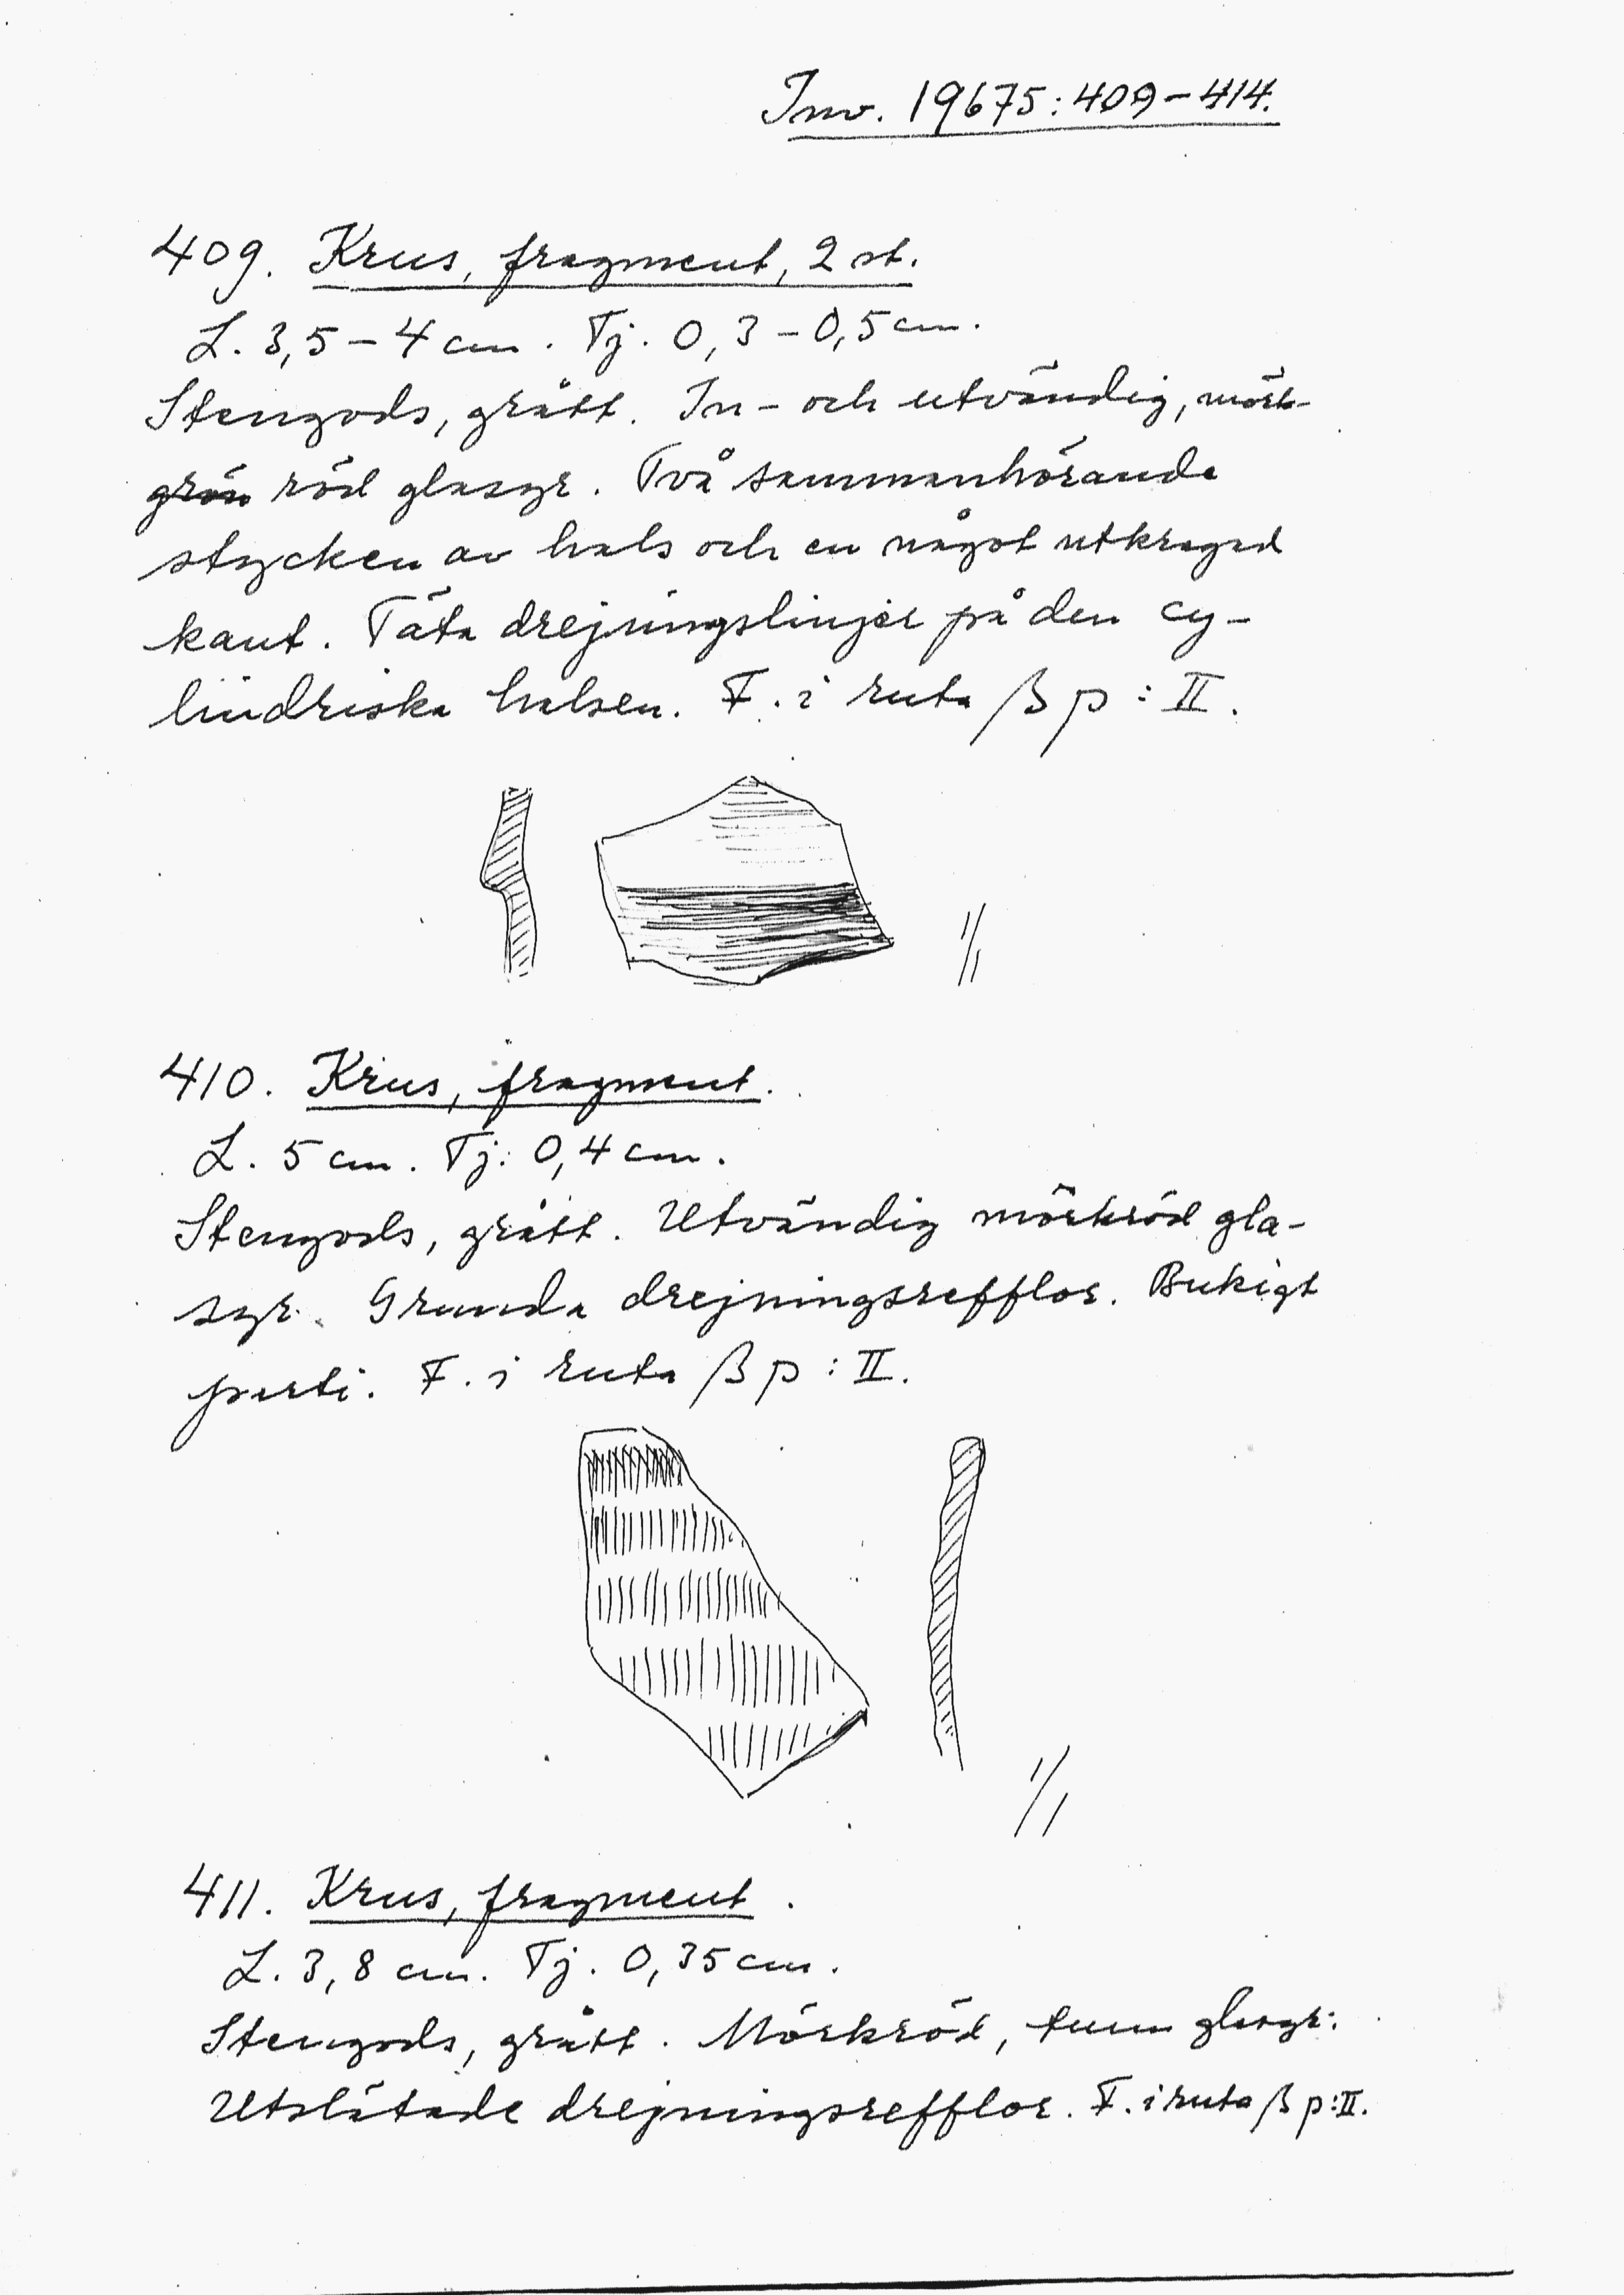 Inv. 19675:409-414.
409. Krus, fragment, 2 st.
L. 3,5-4 cm. Tj. 0,3-0,5 cm.
Stengods, grått. In- och utvändig, mörk-
grön röd glasyr. Två sammanhörande
stycken av hals och en något utkragad
kant. Täta drejningslinjer på den cy-
lindriska halsen. F. i ruta β p : II.
1/1
410. Krus, fragment.
L. 5 cm. Tj. 0,4 cm.
Stengods, grått. Utvändig mörkröd gla-
syr. Grunda drejningsrefflor. Bukigt
parti. F. i ruta β p : II.
1/1
411. Krus, fragment.
L. 3,8 cm. Tj. 0,35 cm.
Stengods, grått. Mörkröd, tunn glasyr.
Utslätade drejningsrefflor. F. i ruta β p:II.